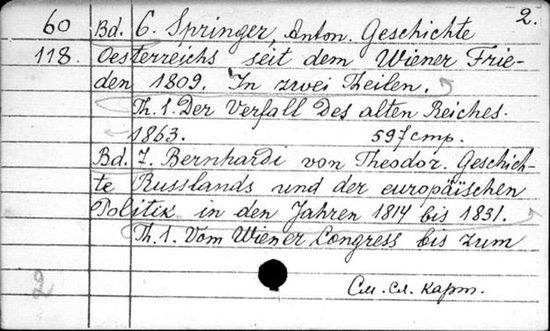 2.
60 Bd. 6. Springer, Anton. Geschichte
118. Oesterreichs seit dem Wiener Frie-
den 1809. In zwei Theilen.
Th. 1. Der Verfall des alten Reiches.
1863. 597 стр.
Bd. 7. Bernhardi von Theodor. Geschich-
te Russlands und der europäischen
Politik in den Jahren 1814 bis 1831.
Th. 1. Vom Wiener Congress bis zum
2
См. сл. карт.